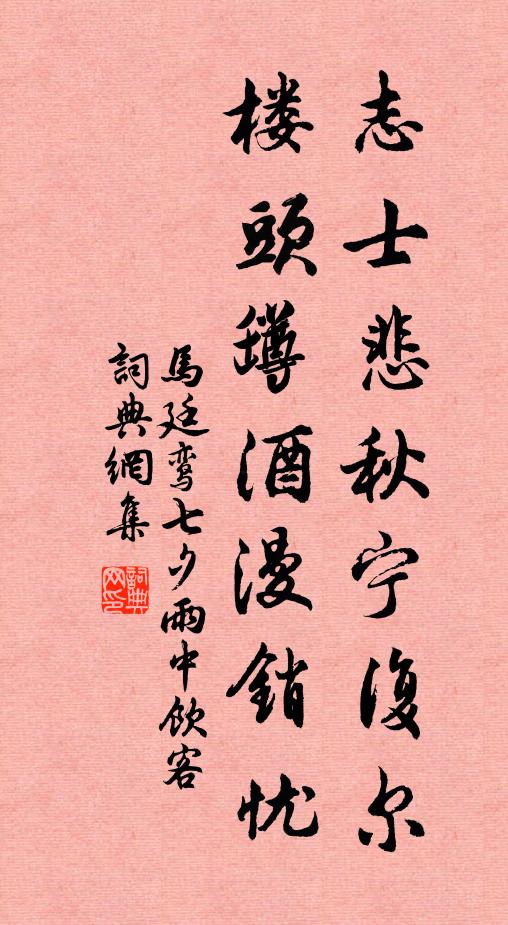 志士悲秋宁復尔
楼頭罇酒漫銷忧
馬廷鸾七夕雨中飲客
詞典網集
詞典网印